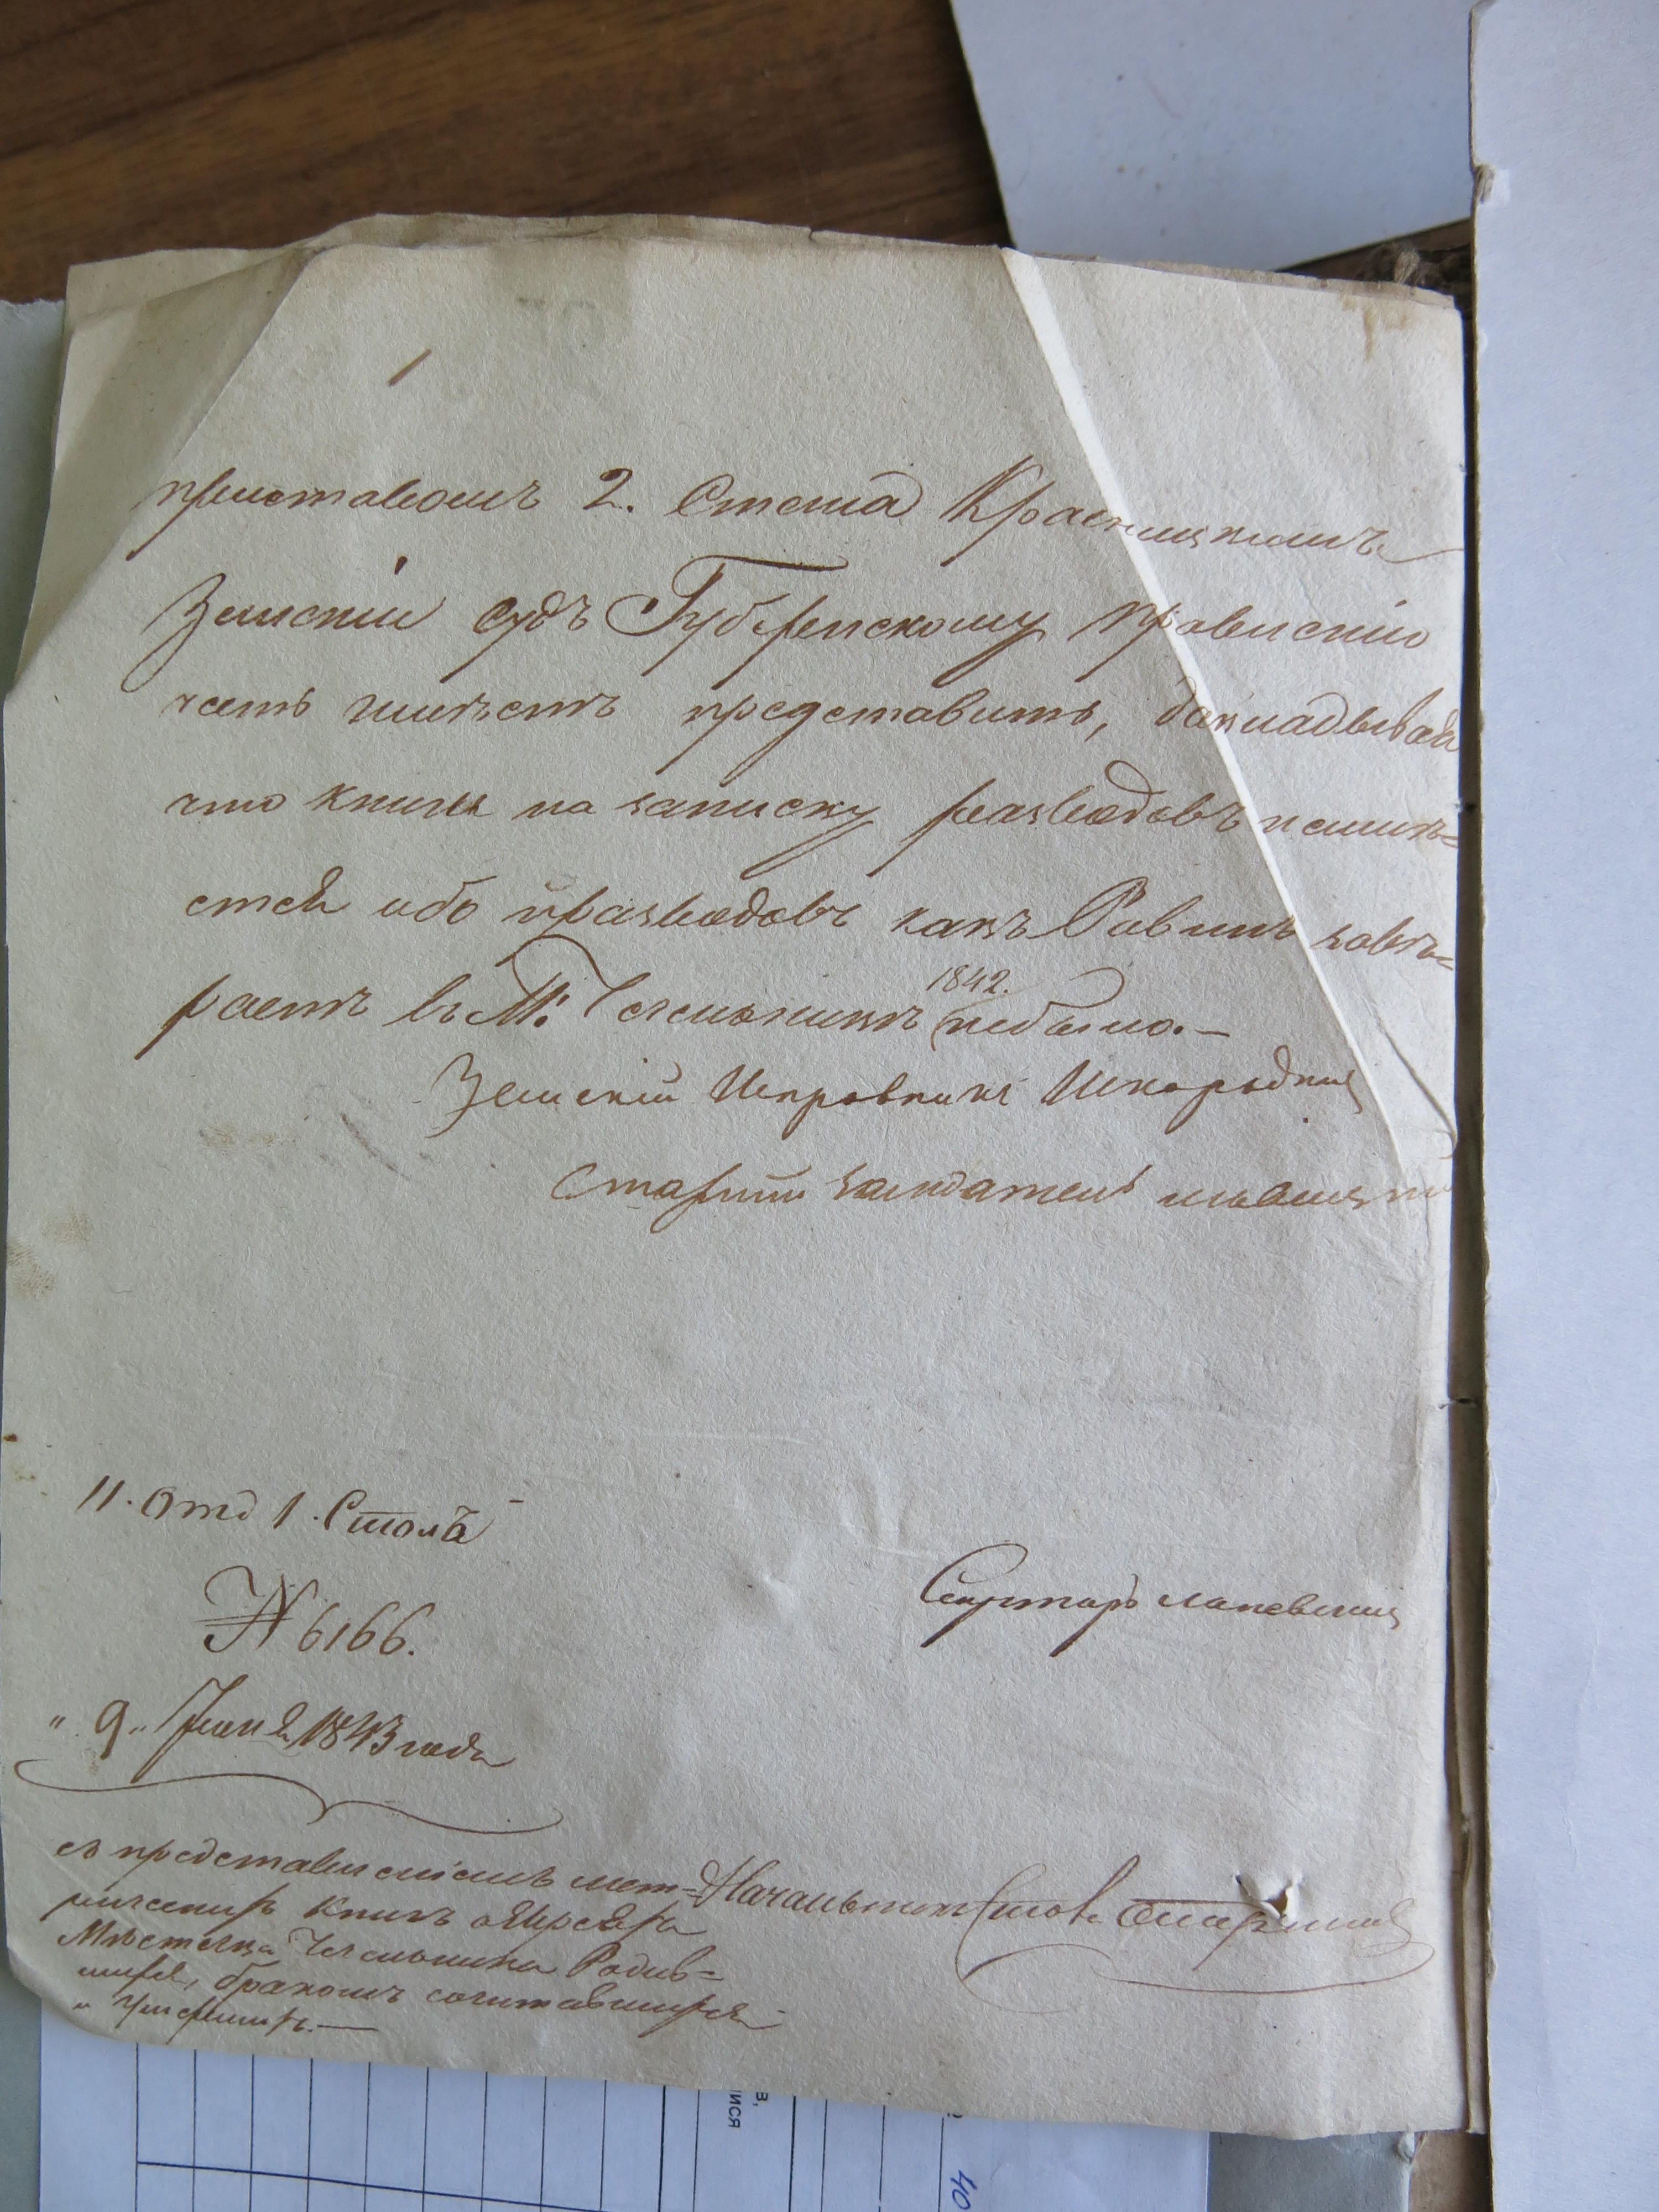 приставомъ 2. Стана Красницкимъ
Земскій Судъ Губернскому Правленію
честь имѣетъ представить, докладывая
что книги на записку разводовъ неимѣ=
ется ибо празводовъ какъ Равинъ завѣ=
1842.
раетъ въ М: Чечельникѣ небыло.—
Земскій Исправникъ
Старшій засѣдатель
11. Отд 1. Стола
№ 6166.
"9" Іюня 1843 года
Секретарь
съ представленіемъ мет=
рическихъ книгъ о Евреяхъ
Мѣстечка Чечельника Родив=
шихся, бракомъ сочитавшихся
и Умершихъ.—
Начальникъ Стола